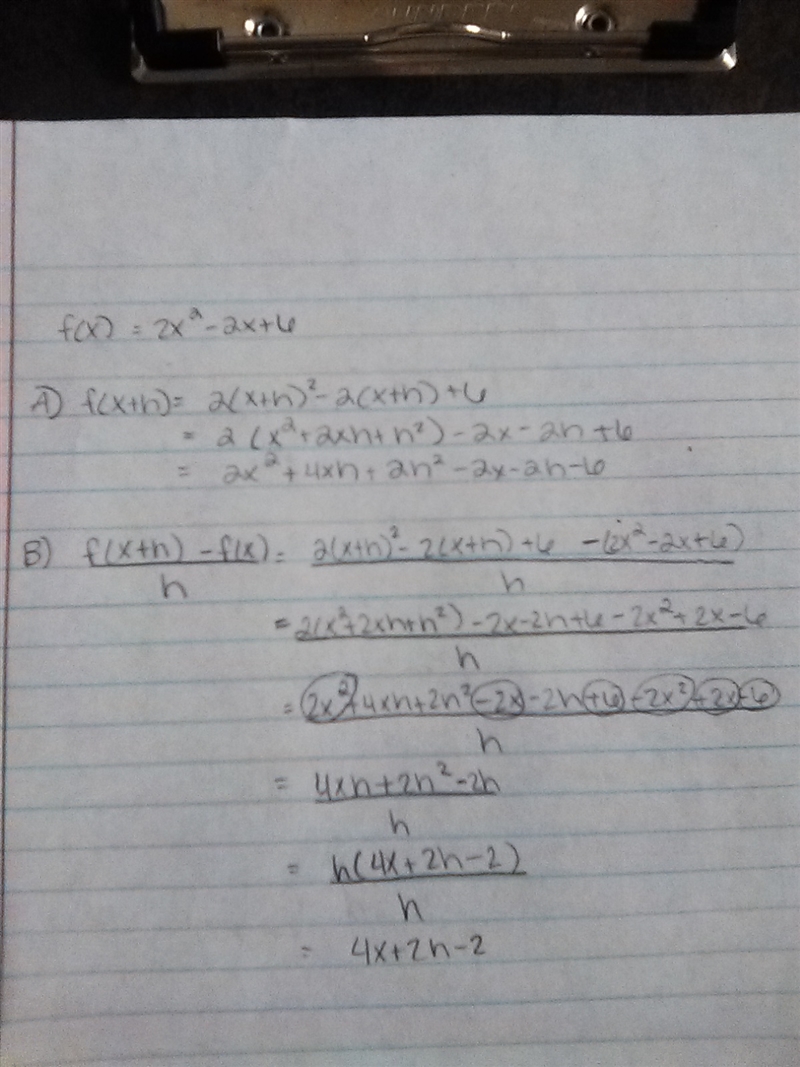 f(x) = 2x² - 2x + 6
A) f(x+h) = 2(x+h)² - 2(x+h) + 6
= 2(x² + 2xh + h²) - 2x - 2h + 6
= 2x² + 4xh + 2h² - 2x - 2h - 6
B) f(x+h) - f(x) / h = 2(x+h)² - 2(x+h) + 6 - (2x² - 2x + 6) / h
= 2(x² + 2xh + h²) - 2x - 2h + 6 - 2x² + 2x - 6 / h
= 2x² + 4xh + 2h² - 2x - 2h + 6 - 2x² + 2x - 6 / h
= 4xh + 2h² - 2h / h
= h(4x + 2h - 2) / h
= 4x + 2h - 2